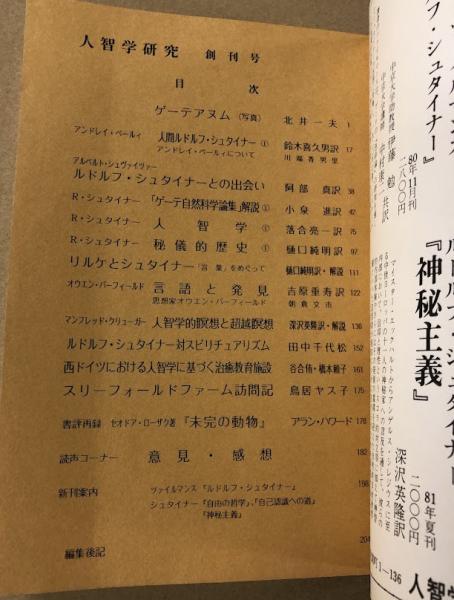 人智学研究 創刊号
目次
ゲーテアヌム(写真) 北井一夫 1
アンドレイ・ベールィ 人間ルドルフ・シュタイナー① 鈴木喜久男訳 17
アンドレイ・ベールィについて 川端香男里
アルベルト・シュヴァイツァー
ルドルフ・シュタイナーとの出会い 阿部真訳 38
R・シュタイナー 「ゲーテ自然科学論集」解説① 小泉進訳 42
R・シュタイナー 人智学① 落合亮一訳 75
R・シュタイナー 秘儀的歴史① 樋口純明訳 97
リルケとシュタイナー「言葉」をめぐって 樋口純明訳・解説 111
オウエン・バーフィールド 言語と発見 吉原重寿訳 122
思想家オウエン・バーフィールド 朝倉文市
マンフレッド・クリューガー 人智学的瞑想と超越瞑想 深沢英隆訳・解説 136
ルドルフ・シュタイナー対スピリチュアリズム 田中千代松 152
西ドイツにおける人智学に基づく治癒教育施設 谷合侑・橋本雅子 161
スリーフォールドファーム訪問記 鳥居ヤス子 175
書評再録 セオドア・ローザク著 『未完の動物』 アラン・ハワード 178
読声コーナー 意見・感想 182
新刊案内 ヴァイルマンス「ルドルフ・シュタイナー」 198
シュタイナー「自由の哲学」、「自己認識への道」
「神秘主義」
編集後記 204
フ・シュタイナー』
中京大学助教授 伊藤勉
中京大学講師 中村康二 共訳
80年11月刊
一八〇〇円
ルドルフ・シュタイナー
『神秘主義』
マイスター・エックハルトからアンゲルス・シレジウスに至
深沢英隆訳
81年夏刊
二〇〇〇円
1―136
人智学